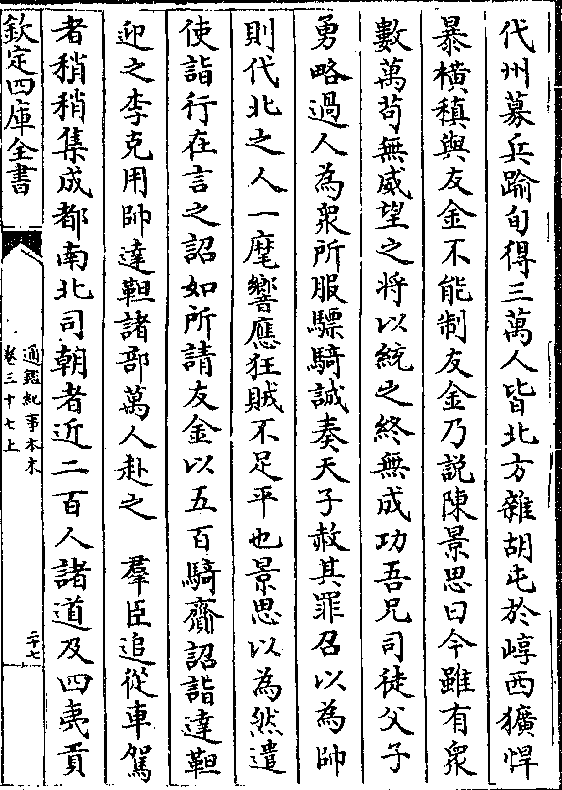 代州募兵踰旬得三萬人皆北方雜胡屯於崞西獷悍
暴橫稹與友金不能制友金乃説陳景思曰今雖有衆
數萬苟無威望之将以統之終無成功吾兄司徒父子
勇略過人為衆所服驃騎誠奏天子赦其罪召以為帥
則代北之人一麾響應狂賊不足平也景思以為然遣
使詣行在言之詔如所請友金以五百騎齎詔詣達靼
迎之李克用帥達靼諸部萬人赴之　羣臣追從車駕
者稍稍集成都南北司朝者近二百人諸道及四夷貢
欽定四庫全書
通鑑紀事本末
卷三十七上
二十七